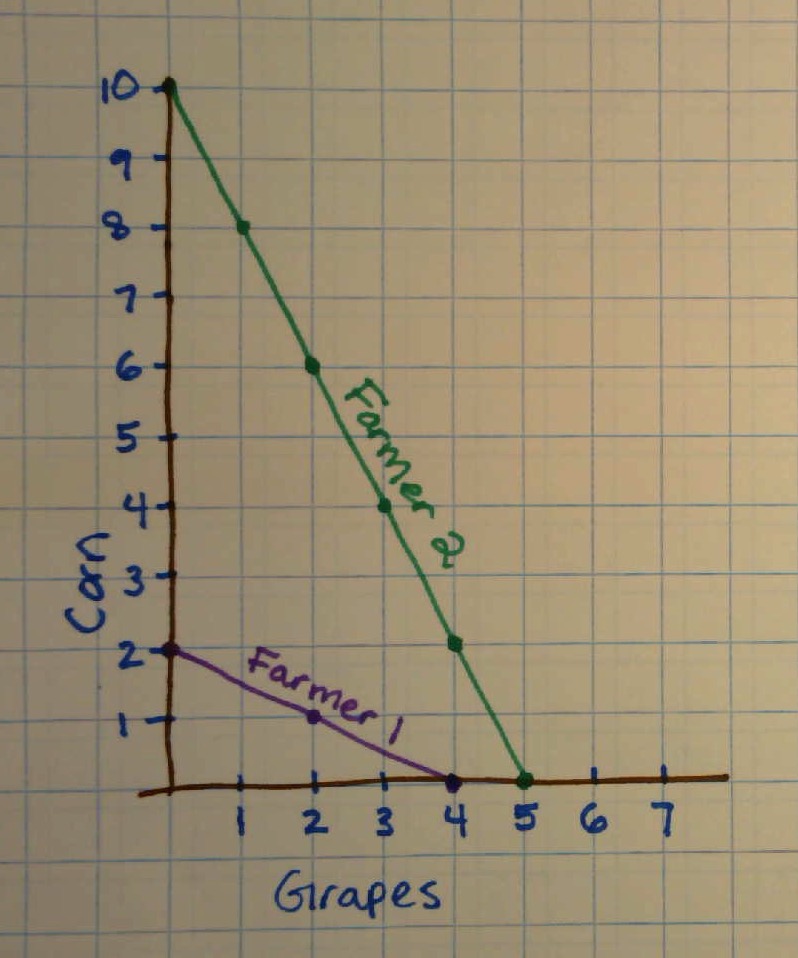 10
9
8
7
6
5
4
3
2
1
Corn
Farmer 2
Farmer 1
1 2 3 4 5 6 7
Grapes